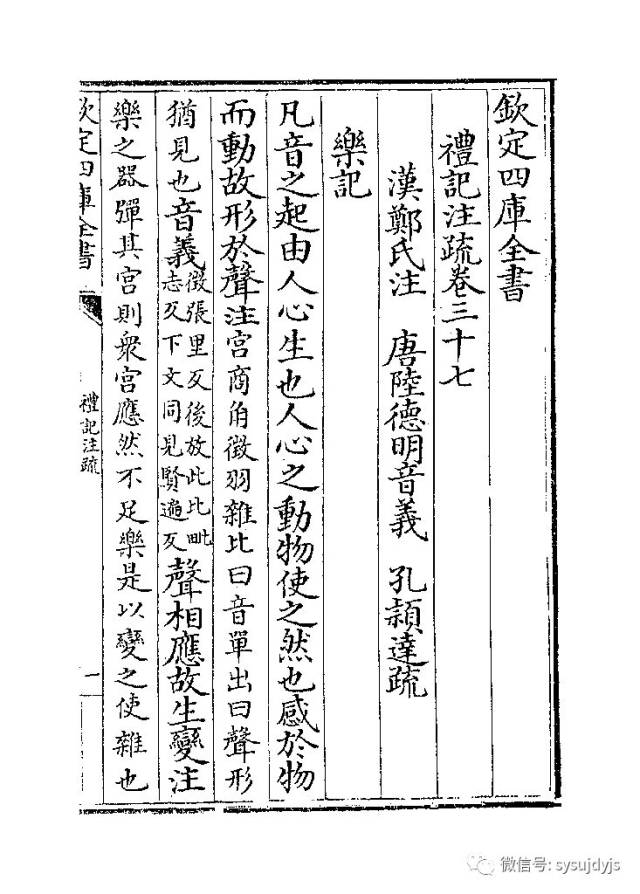 欽定四庫全書
禮記注疏卷三十七
漢鄭氏注　唐陸德明音義　孔頴達疏
樂記
凡音之起由人心生也人心之動物使之然也感於物
而動故形於聲注宫商角徵羽雜比曰音單出曰聲形
猶見也音義徵張里反後放此比毗
志反下文同見賢遍反聲相應故生變注
樂之器彈其宫則衆宫應然不足樂是以變之使雜也
欽定四庫全書
禮記注疏
一
微信号: sysujdyjs